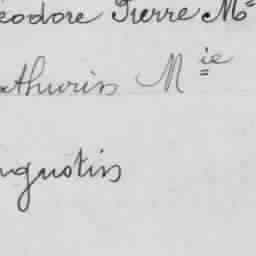 éodore Pierre M
athurin M ie
ugustin